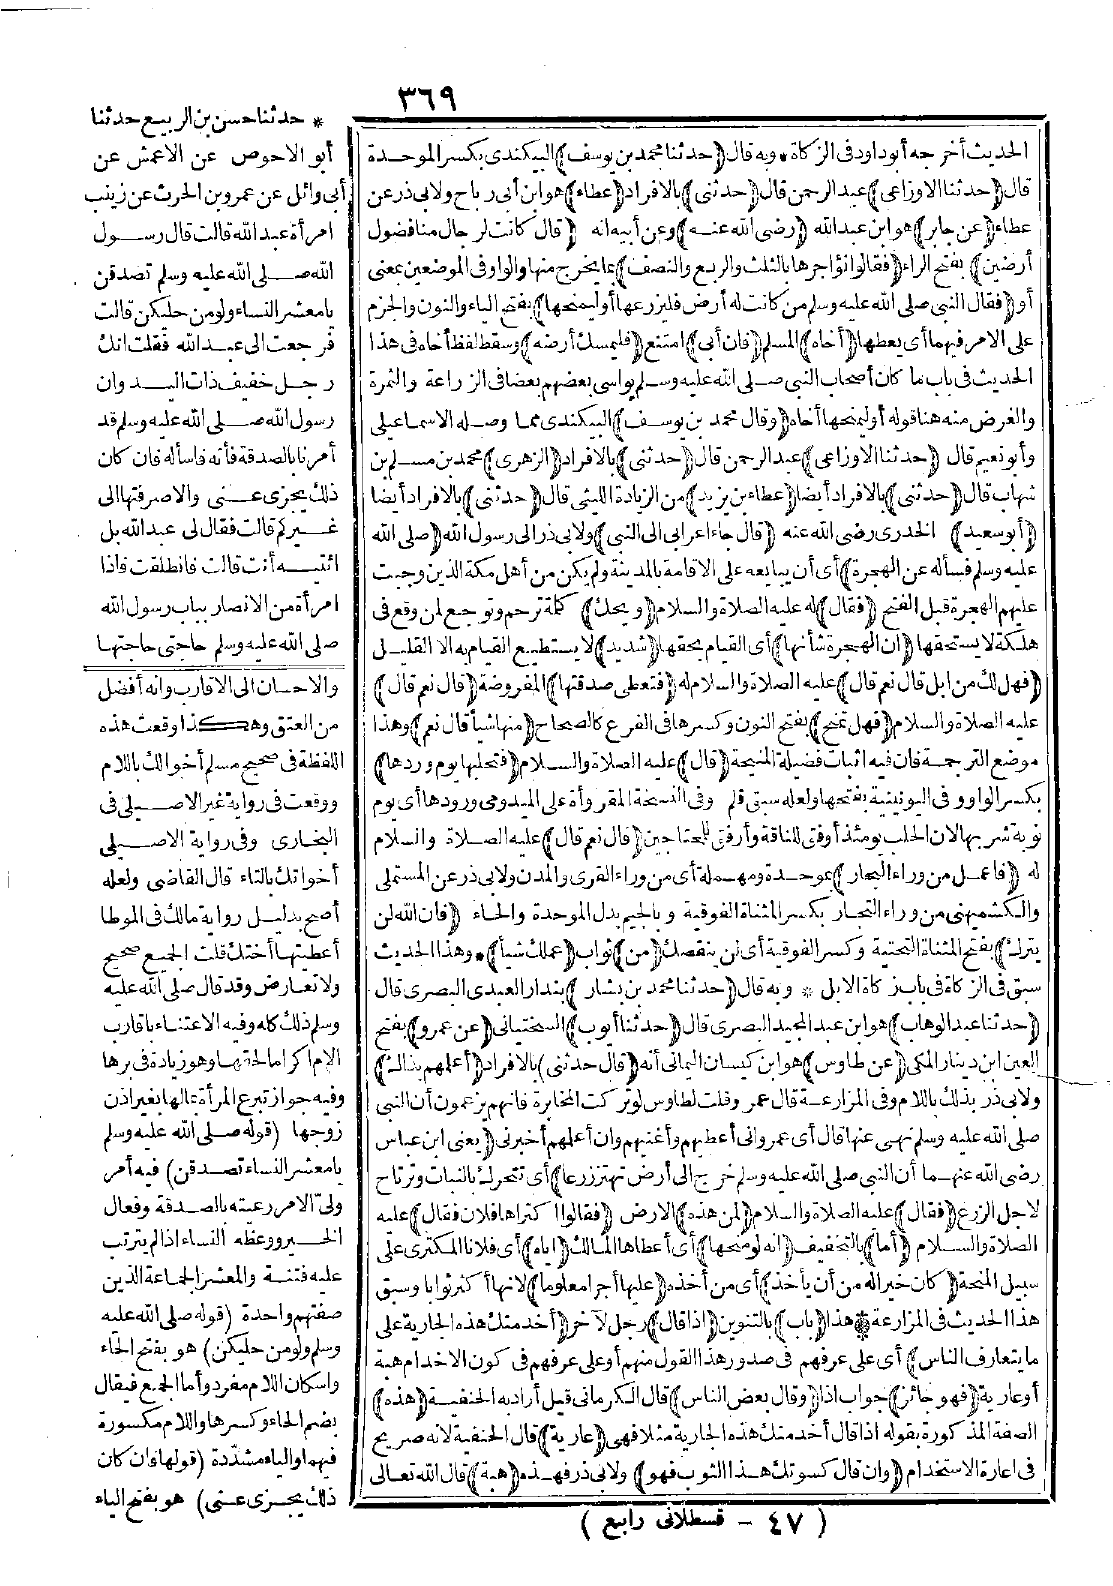 ٣٦٩
الحديث أخرجه أبو داود فى الزكاة * وبه قال (حدثنا محمد بن يوسف) البيكندى بكسر الموحدة
قال (حدثنا الاوزاعى) عبد الرحمن قال (حدثنى) بالافراد (عطاء) هو ابن أبى رباح ولابى ذر عن
عطاء (عن جابر) هو ابن عبد الله (رضى الله عنه) وعن أبيه انه (قال كانت لرجال منا فضول
أرضين) بفتح الراء (فقالوا نؤاجرها بالثلث والربع والنصف) بما يخرج منها والواو فى الموضعين بمعنى
أو (فقال النبى صلى الله عليه وسلم من كانت له أرض فليزرعها أو ليمنحها) بفتح الياء والنون والجزم
على الامر فيهما أى يعطها (أخاه) المسلم (فان أبى) امتنع (فليمسك أرضه) وسقط لفظ أخاه فى هذا
الحديث فى باب ما كان أصحاب النبى صلى الله عليه وسلم يواسى بعضهم بعضا فى الزراعة والثمرة
والغرض منه هنا قوله أو ليمنحها أخاه (وقال محمد بن يوسف) البيكندى مما وصله الاسماعيلى
وأبو نعيم قال (حدثنا الاوزاعى) عبد الرحمن قال (حدثنى) بالافراد (الزهرى) محمد بن مسلم بن
شهاب قال (حدثنى) بالافراد أيضا (عطاء بن يزيد) من الزيادة الليثى قال (حدثنى) بالافراد أيضا
(أبو سعيد) الخدرى رضى الله عنه (قال جاء اعرابى الى النبى) ولابى ذر الى رسول الله (صلى الله
عليه وسلم فسأله عن الهجرة) أى أن يبايعه على الاقامة بالمدينة ولم يكن من أهل مكة الذين وجبت
عليهم الهجرة قبل الفتح (فقال) له عليه الصلاة والسلام (ويحك) كلمة ترحم وتوجع لمن وقع فى
هلكة لا يستحقها (ان الهجرة شأنها) أى القيام بحقها (شديد) لا يستطيع القيام به الا القليل
(فهل لك من ابل قال نعم قال) عليه الصلاة والسلام له (فتعطى صدقتها) المفروضة (قال نعم قال)
عليه الصلاة والسلام (فهل تمنح) بفتح النون وكسرها فى الفرع كالصحاح (منها شيأ قال نعم) وهذا
موضع الترجمة فان فيه اثبات فضيلة المنيحة (قال) عليه الصلاة والسلام (فتحلبها يوم وردها)
بكسر الواو وفى اليونينية بفتحها ولعله سبق قلم وفى النسخة المقروأة على الميدومى ورودها أى يوم
نوبة شربها لان الحلب يومئذ أوفق للناقة وأرفق للمحتاجين (قال نعم قال) عليه الصلاة والسلام
له (فاعمل من وراء البحار) بموحدة ومهملة أى من وراء القرى والمدن ولابى ذر عن المستملى
والكشميهنى من وراء التجار بكسر المثناة الفوقية وبالجيم بدل الموحدة والحاء (فان الله لن
يترك) بفتح المثناة التحتية وكسر الفوقية أى لن ينقصك (من) ثواب (عملك شيأ) * وهذا الحديث
سبق فى الزكاة فى باب زكاة الابل * وبه قال (حدثنا محمد بن بشار) بندار العبدى البصرى قال
(حدثنا عبد الوهاب) هو ابن عبد المجيد البصرى قال (حدثنا أيوب) السختيانى (عن عمرو) بفتح
العين ابن دينار المكى (عن طاوس) هو ابن كيسان اليمانى أنه (قال حدثنى) بالافراد (أعلمهم بذلك)
ولابى ذر بذلك باللام وفى المزارعة قال عمر وقلت لطاوس لو تركت المخابرة فانهم يزعمون أن النبى
صلى الله عليه وسلم نهى عنها قال أى عمرو انى أعطيهم وأغنيهم وان أعلمهم أخبرنى (يعنى ابن عباس
رضى الله عنهما أن النبى صلى الله عليه وسلم خرج الى أرض تهتز زرعا) أى تتحرك بالنبات وترتاح
لاجل الزرع (فقال) عليه الصلاة والسلام (لمن هذه) الارض (فقالوا اكتراها فلان فقال) عليه
الصلاة والسلام (أما) بالتخفيف (انه لو منحها) أى أعطاها المالك (اياه) أى فلانا المكترى على
سبيل المنحة (كان خيرا له من أن يأخذ) أى من أخذه (عليها أجرا معلوما) لانها أكثر ثوابا وسبق
هذا الحديث فى المزارعة * هذا (باب) بالتنوين (اذا قال) رجل لآخر (أخدمتك هذه الجارية على
ما يتعارف الناس) أى على عرفهم فى صدور هذا القول منهم أو على عرفهم فى كون الاخدام هبة
أو عارية (فهو جائز) جواب اذا (وقال بعض الناس) قال الكرمانى قيل أراد به الحنفية (هذه)
الصفة المذكورة بقوله اذا قال أخدمتك هذه الجارية مثلا فهى (عارية) قال الحنفية لانه صريح
فى اعارة الاستخدام (وان قال كسوتك هذا الثوب فهو) ولابى ذر فهذه (هبة) قال الله تعالى
* حدثنا حسن بن الربيع حدثنا
أبو الاحوص عن الاعمش عن
أبى وائل عن عمرو بن الحرث عن زينب
امرأة عبد الله قالت قال رسول
الله صلى الله عليه وسلم تصدقن
يا معشر النساء ولو من حليكن قالت
فرجعت الى عبد الله فقلت انك
رجل خفيف ذات اليد وان
رسول الله صلى الله عليه وسلم قد
أمرنا بالصدقة فأته فاسأله فان كان
ذلك يجزى عنى والا صرفتها الى
غيركم قالت فقال لى عبد الله بل
ائتيه أنت قالت فانطلقت فاذا
امرأة من الانصار بباب رسول الله
صلى الله عليه وسلم حاجتى حاجتها
والاحسان الى الاقارب وانه أفضل
من العتق وهكذا وقعت هذه
اللفظة فى صحيح مسلم أخوالك باللام
ووقعت فى رواية غير الاصيلى فى
البخارى وفى رواية الاصيلى
أخواتك بالتاء قال القاضى ولعله
أصح بدليل رواية مالك فى الموطا
أعطيتها أختك قلت الجميع صحيح
ولا تعارض وقد قال صلى الله عليه
وسلم ذلك كله وفيه الاعتناء باقارب
الام اكراما لحقها وهو زيادة فى برها
وفيه جواز تبرع المرأة بمالها بغير اذن
زوجها (قوله صلى الله عليه وسلم
يا معشر النساء تصدقن) فيه أمر
ولى الامر رعيته بالصدقة وفعال
الخير ووعظه النساء اذا لم يترتب
عليه فتنة والمعشر الجماعة الذين
صفتهم واحدة (قوله صلى الله عليه
وسلم ولو من حليكن) هو بفتح الحاء
واسكان اللام مفرد وأما الجمع فيقال
بضم الحاء وكسرها واللام مكسورة
فيهما والياء مشددة (قولها فان كان
ذلك يجزى عنى) هو بفتح الياء
(٤٧ - قسطلانى رابع)